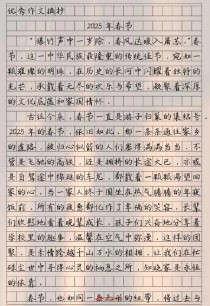 优秀作文摘抄
2025年春节
“爆竹声中一岁除，春风送暖入屠苏。”春
节，这一中华民族最隆重的传统佳节，宛如一
颗璀璨的明珠，在历史的长河中闪耀着独特的
光芒，承载着无尽的欢乐与希望，凝聚着深厚
的文化底蕴和家国情怀。
古往今来，春节一直是游子归家的集结号。
2025年的春节，依旧如此，那一条条通往家乡
的道路，被归心似箭的人们塞得满满当当。不
管是飞驰的高铁，还是拥挤的长途大巴，亦或
是自驾途中绵延的车龙，都载着一颗颗渴望回
家的心。当一家人终于围坐在热气腾腾的年夜
饭前，所有的疲惫都化作了幸福的笑容。长辈
们欣慰地看着晚辈成长，孩子们兴奋地分享着
学校里的趣事，温馨在空气中弥漫。这样的团
聚，是亲情跨越千山万水的相拥，让我们在忙
碌尘世中寻得心灵的栖息之所，知晓家是永恒
的依靠。
春节，也如同一条无形的纽带，将过去与